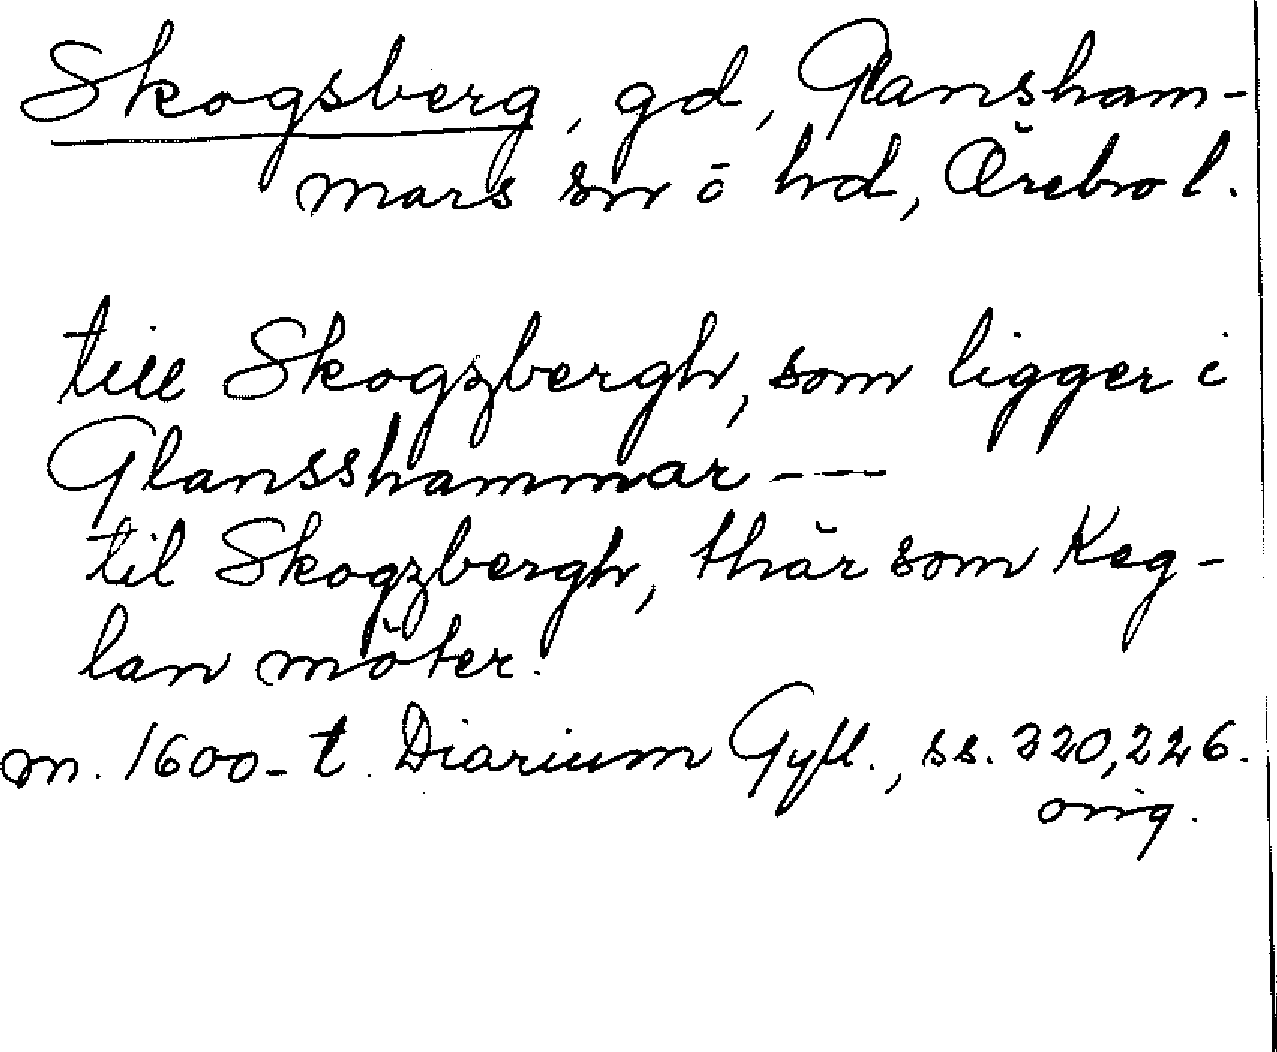 Skogsberg, gd, Glansham-
mars sn o hd, Örebro l.
till Skogzbergh, som ligger i
Glansshammar ---
til Skogzbergh, thär som Keg-
lan möter.
m. 1600-t. Diarium Gyll., ss. 220, 226.
orig.